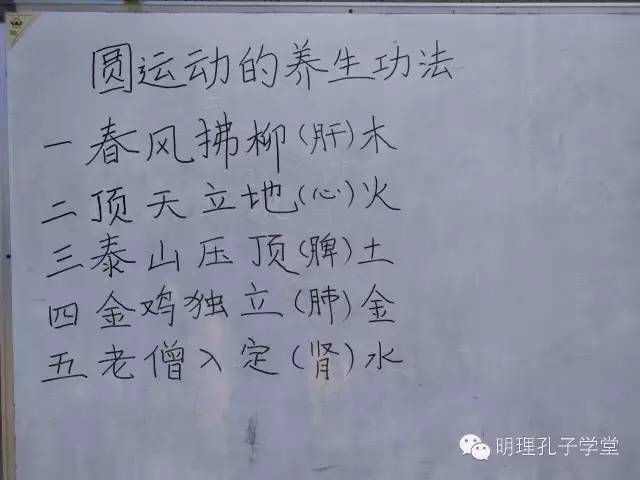 圆运动的养生功法
一春风拂柳(肝)木
二顶天立地(心)火
三泰山压顶(脾)土
四金鸡独立(肺)金
五老僧入定(肾)水
明理孔子学堂